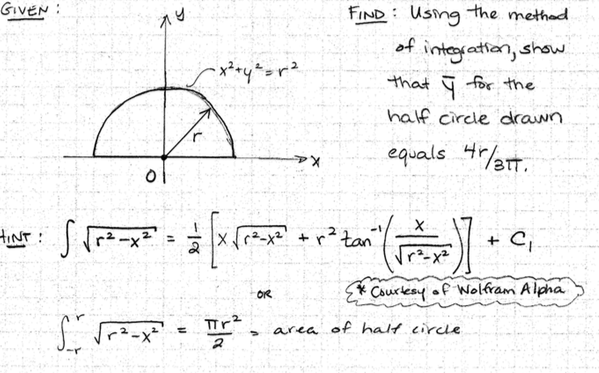 GIVEN:
y
x²+y²=r²
r
x
O
FIND: Using the method
of integration, show
that ȳ for the
half circle drawn
equals 4r/3π.
HINT: ∫ √(r²-x²) = 1/2 [x√(r²-x²) + r² tan⁻¹(x/√(r²-x²))] + C₁
* Courtesy of Wolfram Alpha
OR
∫₋ᵣʳ √(r²-x²) = πr²/2 = area of half circle